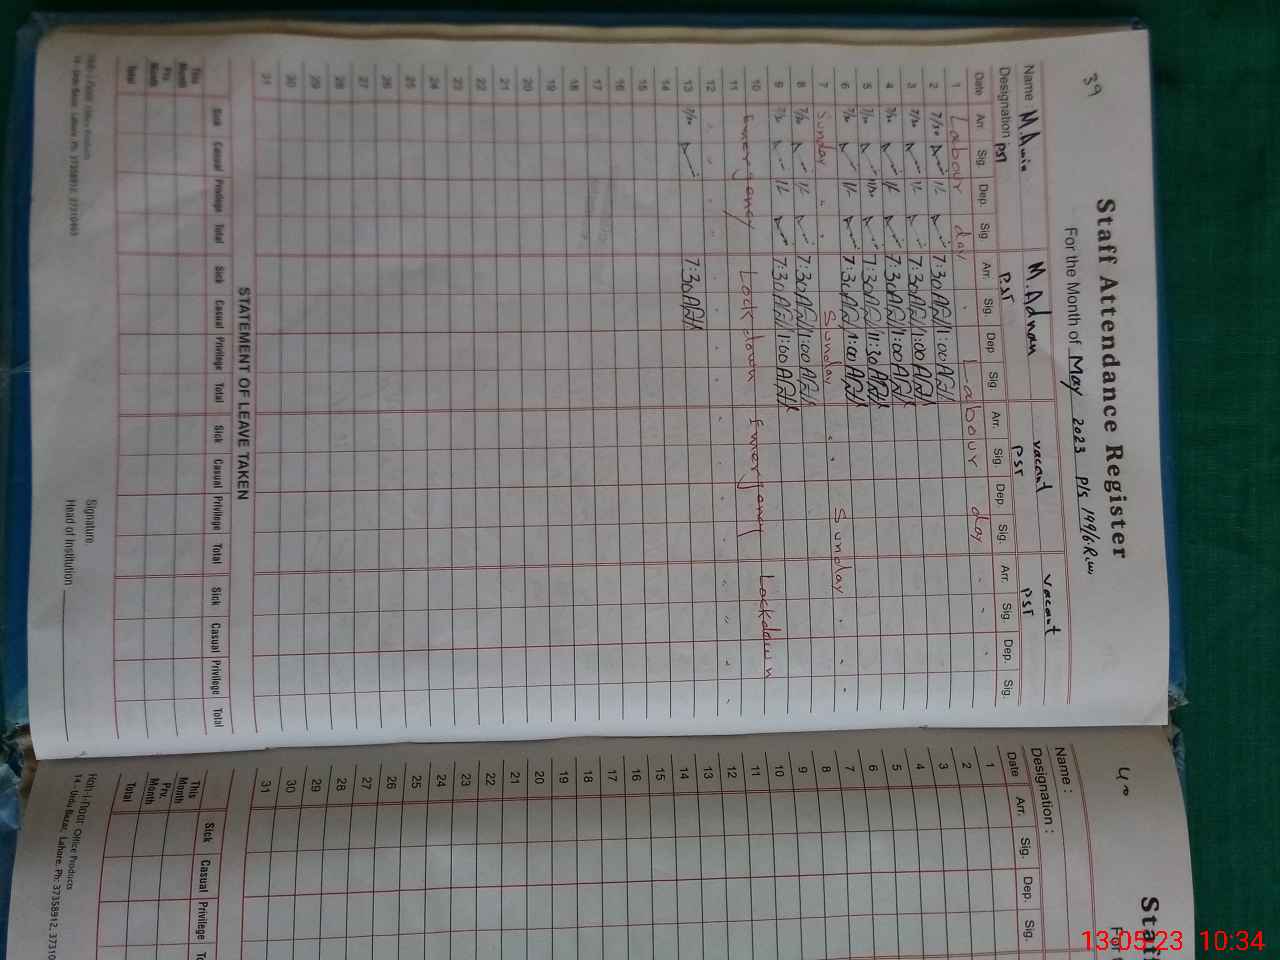 39
Staff Attendance Register
For the Month of May 2023 P/S 199/6.R
Name : M Amin M. Adnan vacant vacant
Designation : PST PST PST PST
Date Arr. Sig. Dep. Sig. Arr. Sig. Dep. Sig. Arr. Sig. Dep. Sig. Arr. Sig. Dep. Sig.
1 Labour day Labour day
2 7/30 1/- 7:30 1:00
3 7/30 1/- 7:30 1:00
4 7/30 1/- 7:30 1:00
5 7/30 7:30 11:30
6 7/30 1/- 7:30 1:00
7 Sunday Sunday Sunday
8 7/30 1/- 7:30 1:00
9 7/30 1/- 7:30 1:00
10 Emergency Lock down Emergency Lockdown
11
12
13 7/30 7:30
14
15
16
17
18
19
20
21
22
23
24
25
26
27
28
29
30
31
STATEMENT OF LEAVE TAKEN
Sick Casual Privilege Total Sick Casual Privilege Total Sick Casual Privilege Total Sick Casual Privilege Total
This Month
Prv. Month
Total
Signature
Head of Institution
14 - Urdu Bazar, Lahore. Ph: 37358912, 37310463
40
Sta
Name :
Designation :
Date Arr. Sig. Dep. Sig.
1
2
3
4
5
6
7
8
9
10
11
12
13
14
15
16
17
18
19
20
21
22
23
24
25
26
27
28
29
30
31
Sick Casual Privilege
This Month
Prv. Month
Total
Office Products
14 - Urdu Bazar, Lahore. Ph: 37358912, 3731
13.05.23 10:34